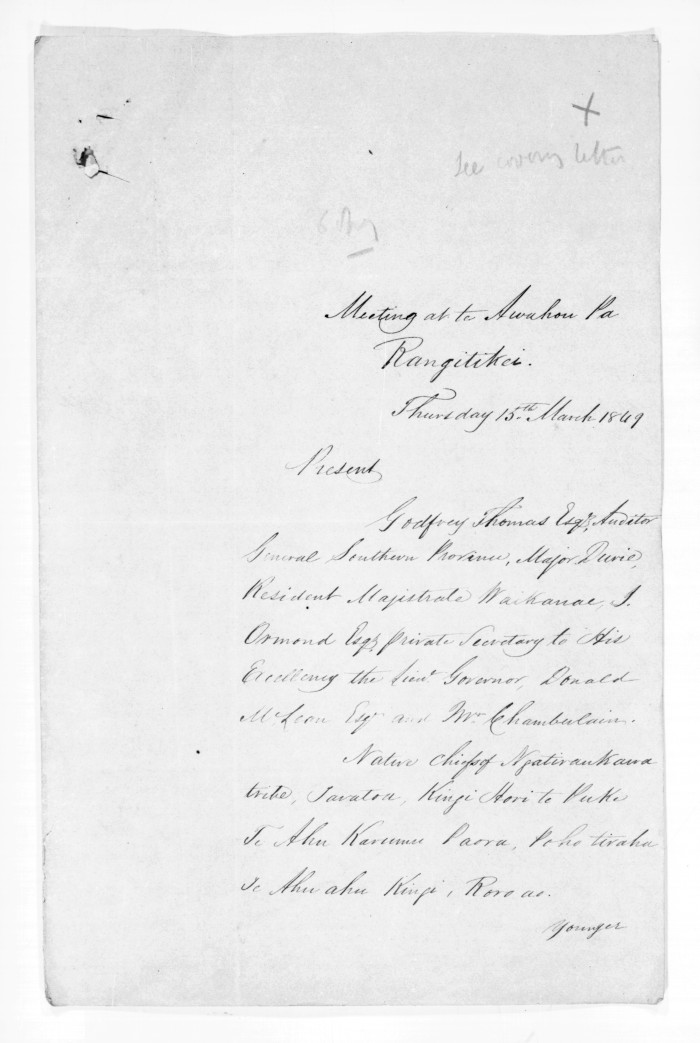 See covering letter
Meeting at te Awahou Pa
Rangitikei.
Thursday 15th March 1849
Present
Godfrey Thomas Esqr, Auditor
General Southern Province, Major Durie,
Resident Majistrate Waikanae, J.
Ormond Esqr private Secretary to His
Excellency the Lieut Governor, Donald
McLean Esqr and Mr Chamberlain.
Native chiefs of Ngatiraukawa
tribe, Taratoa, Kingi Hori te Puke
Te Ahu Karumu Paora, Poho tiraha
Te Ahu ahu Kingi, Roro ao.
Younger